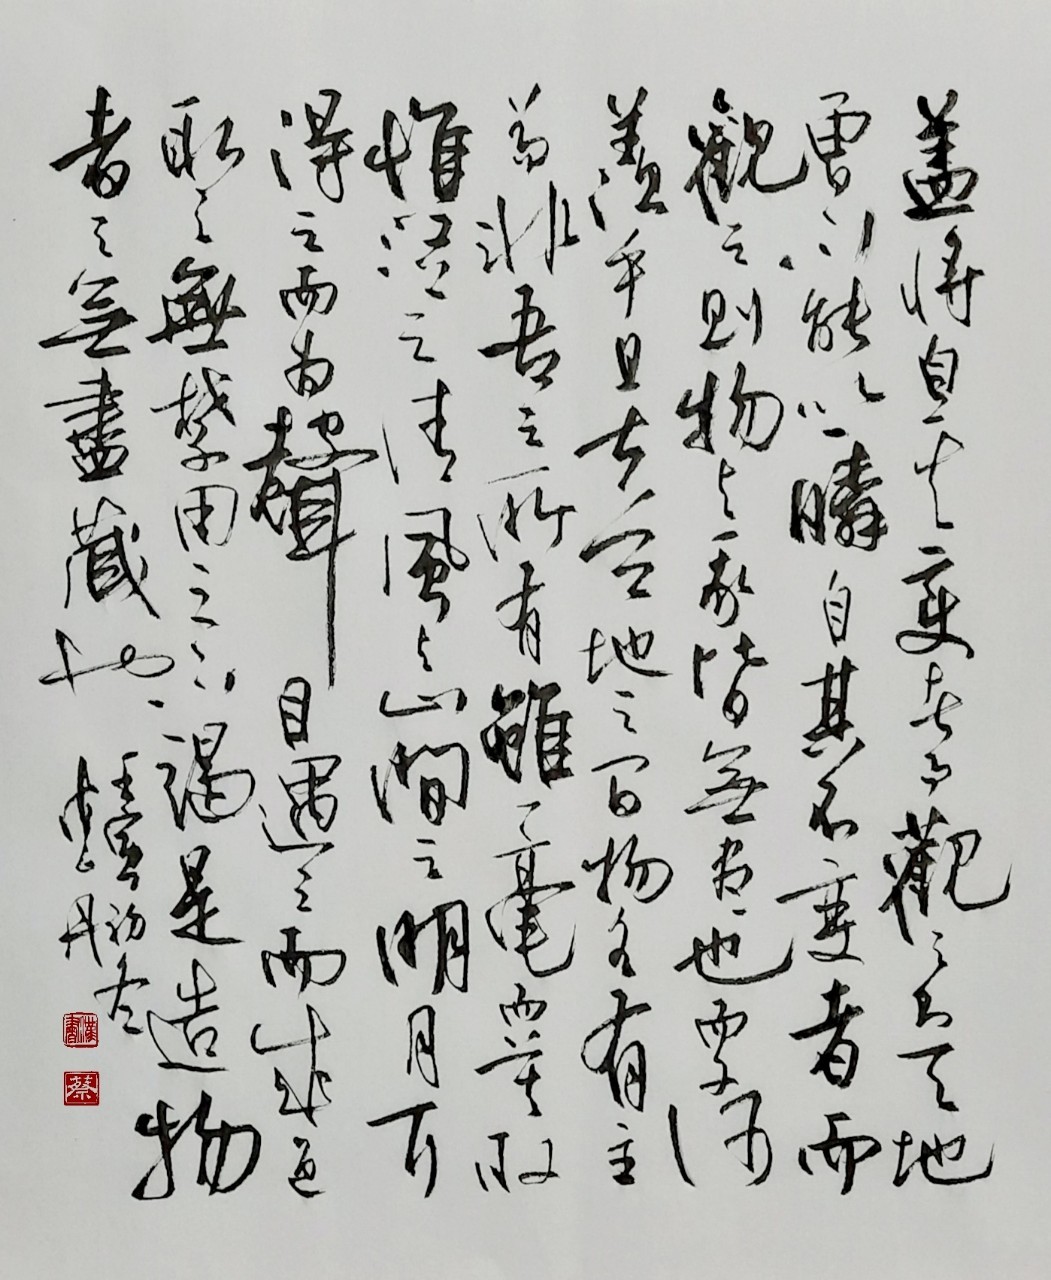 蓋將自其變者而觀之則天地
曾不能以一瞬自其不變者而
觀之則物與我皆無盡也而又何
羨乎且夫天地之間物各有主
苟非吾之所有雖一毫而莫取
惟江上之清風與山間之明月耳
得之而為聲目遇之而成色
取之無禁用之不竭是造物
者之無盡藏也
壬寅初冬
蔡